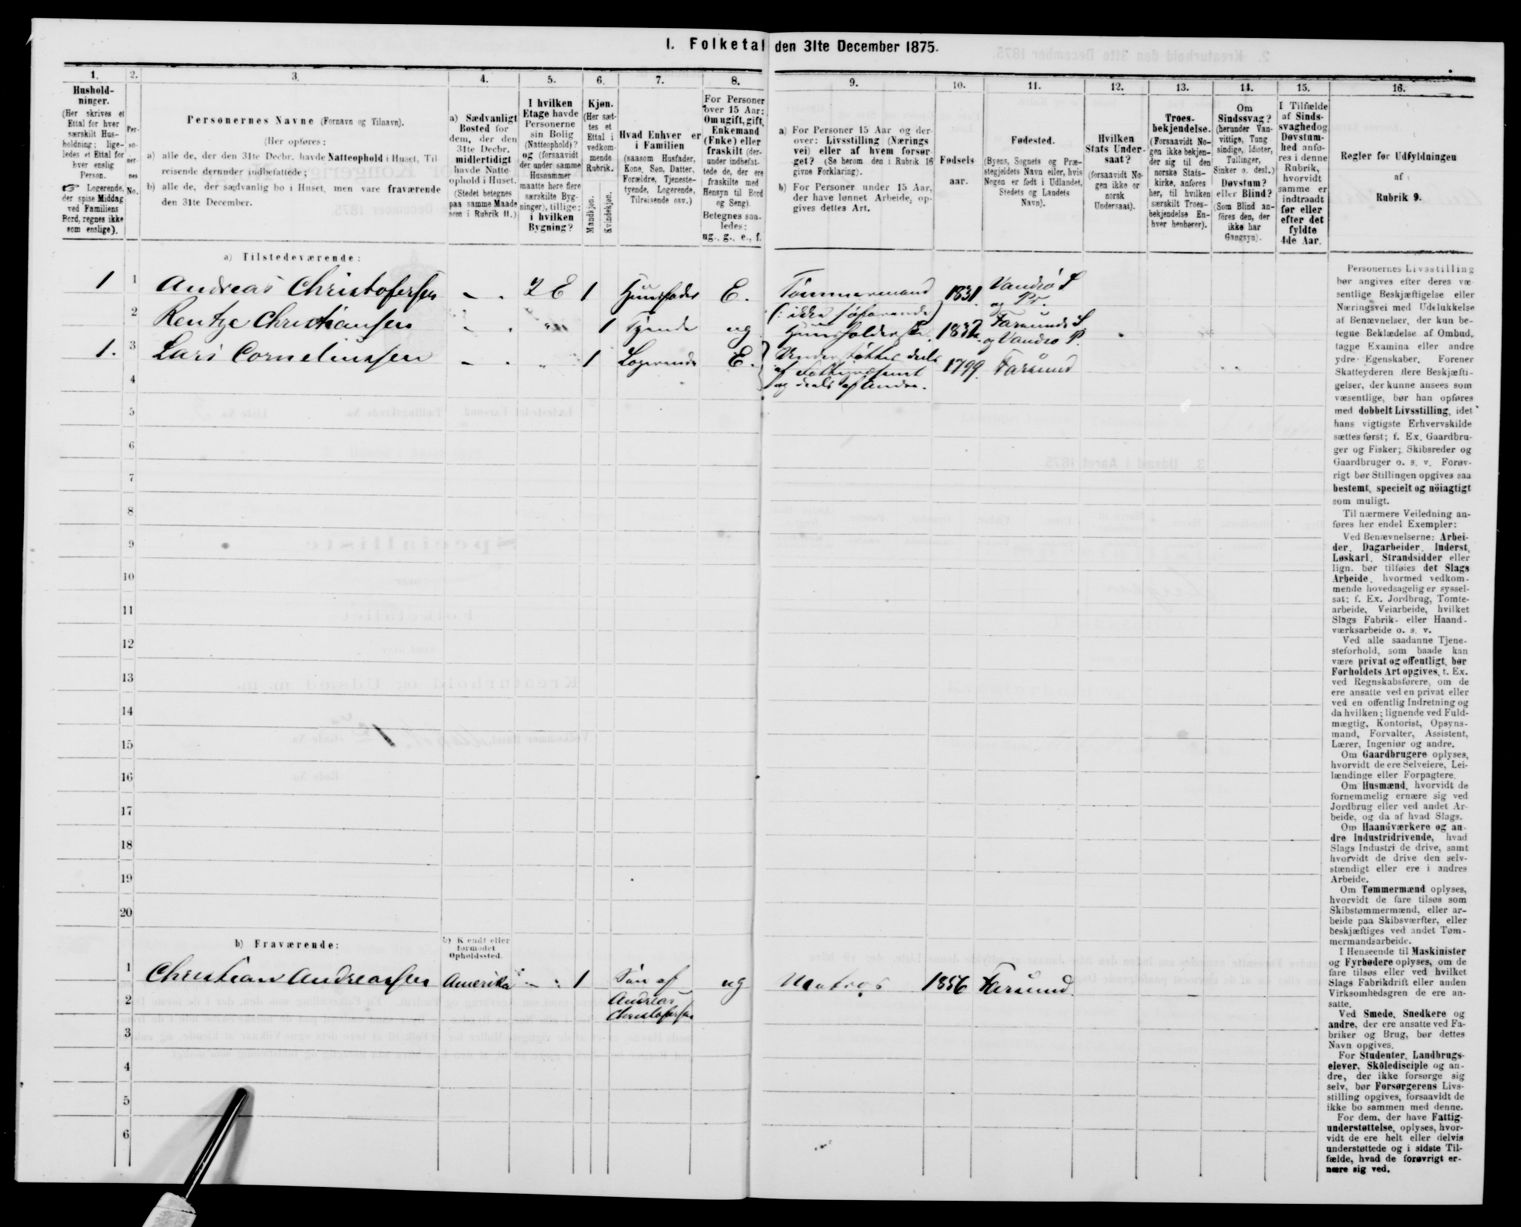 1. Folketal den 31te December 1875.
1.
Husholdninger.
(Her skrives et Ettal for hver særskilt Husholdning; ligeledes et Ettal for hver enslig Person.
☞ Logerende, der spise Middag ved Familiens Bord, regnes ikke som enslige).
2.
Personernes No.
3.
Personernes Navne (Fornavn og Tilnavn).
(Her opføres:
a) alle de, der den 31te Decbr. havde Natteophold i Huset, Tilreisende derunder indbefattede;
b) alle de, der sædvanlig bo i Huset, men vare fraværende den 31te Decbr.
4.
a) Sædvanligt Bosted for dem, der den 31te Decbr. midlertidigt havde Natteophold i Huset.
(Stedet betegnes paa samme Maade som i Rubrik 11.)
5.
I hvilken Etage havde Personerne sin Bolig (Natteophold)? og (forsaavidt der under samme Husnummer maatte høre flere særskilte Bygninger), tillige: i hvilken Bygning?
6.
Kjøn.
(Her sættes et Ettal i vedkommende Rubrik.
Mandkjøn.
Kvindekjøn.
7.
Hvad Enhver er i Familien
(saasom Husfader, Kone, Søn, Datter, Forældre, Tjenestetyende, Logerende, Tilreisende osv.)
8.
For Personer over 15 Aar: Om ugift, gift, Enkemand (Enke) eller fraskilt (derunder indbefattede de, der ere fraskilte med Hensyn til Bord og Seng).
Betegnes saaledes: ug., g., e., f.
9.
a) For Personer 15 Aar og derover: Livsstilling (Næringsvei) eller af hvem forsørget? (Se herom den i Rubrik 16 givne Forklaring).
b) For Personer under 15 Aar, der have lønnet Arbeide, opgives dettes Art.
10.
Fødselsaar.
11.
Fødested.
(Byens, Sognets og Præstegjeldets Navn eller, hvis Nogen er født i Udlandet, Stedets og Landets Navn).
12.
Hvilken Stats Undersaat?
(forsaavidt Nogen ikke er norsk Undersaat).
13.
Troesbekjendelse.
(Forsaavidt Nogen ikke bekjender sig til den norske Statskirke, anføres her, til hvilken særskilt Troesbekjendelse Enhver henhører).
14.
Om Sindssvag?
(herunder Vanvittige, Tungsindige, Idioter, Tullinger, Sinker o. desl.)
Døvstum? eller Blind?
(Som Blind anføres den, der ikke har Gangsyn).
15.
I Tilfælde af Sindssvaghed og Døvstumhed anføres i denne Rubrik, hvorvidt samme er indtraadt før eller efter det fyldte 4de Aar.
16.
Regler for Udfyldningen
af
Rubrik 9.
a) Tilstedeværende:
1 1 Andreas Christofersen - . 2 E 1 Huusfader E. Tømmermand 1831 Vandsø S
(: ikke søfarende) og Pr.
2 Christiansen 1 Tjende ug Huusholderske. 1832 Farsunds S
og Vandsø P.
1. 3 Lars Corneliussen - . 1 Logerende E. Understøttes deels
af Fattigvæsenet 1799 Farsund
og deels af Andre.
4
5
6
7
8
9
10
11
12
13
14
15
16
17
18
19
20
b) Fraværende:
b) Kendt eller formodet Opholdssted.
1 Christian Andreassen Amerika - . 1 Søn af ug Matros 1856 Farsund.
2 Andreas
Christofersen
3
4
5
6
Personernes Livsstilling bør angives efter deres væsentlige Beskjæftigelse eller Næringsvei med Udelukkelse af Benævnelser, der kun betegne Beklædelse af Ombud, tagne Examina eller andre ydre Egenskaber. Forener Skatteyderen flere Beskjæftigelser, der kunne ansees som væsentlige, bør han opføres med dobbelt Livsstilling, idet hans vigtigste Erhvervskilde sættes først; f. Ex. Gaardbruger og Fisker; Skibsreder og Gaardbruger o. s. v. Forøvrigt bør Stillingen opgives saa bestemt, specielt og nøiagtigt som muligt.
Til nærmere Veiledning anføres her endel Exempler:
Ved Benævnelserne: Arbeider, Dagarbeider, Inderst, Løskarl, Strandsidder eller lign. bør tilføies det Slags Arbeide, hvormed vedkommende hovedsagelig er sysselsat; f. Ex. Jordbrug, Tomtearbeide, Veiarbeide, hvilket Slags Fabrik- eller Haandværksarbeide o. s. v.
Ved alle saadanne Tjenesteforhold, som baade kan være privat og offentligt, bør Forholdets Art opgives, f. Ex. ved Regnskabsførere, om de ere ansatte ved en privat eller ved en offentlig Indretning og da hvilken; lignende ved Fuldmægtig, Kontorist, Opsynsmand, Forvalter, Assistent, Lærer, Ingeniør og andre.
Om Gaardbrugere oplyses, hvorvidt de ere Selveiere, Leilændinge eller Forpagtere.
Om Husmænd, hvorvidt de fornemmelig ernære sig ved Jordbrug eller ved andet Arbeide, og da af hvad Slags.
Om Haandværkere og andre Industridrivende, hvad Slags Industri de drive, samt hvorvidt de drive den selvstændigt eller ere i andres Arbeide.
Om Tømmermænd oplyses, hvorvidt de fare tilsøs som Skibstømmermænd, eller arbeide paa Skibsværfter, eller beskjæftiges ved andet Tømmermandsarbeide.
I Henseende til Maskinister og Fyrbødere oplyses, om de fare tilsøs eller ved hvilket Slags Fabrikdrift eller anden Virksomhedsgren de ere ansatte.
Ved Smede, Snedkere og andre, der ere ansatte ved Fabriker og Brug, bør dettes Navn opgives.
For Studenter, Landbrugselever, Skoledisciple og andre, der ikke forsørge sig selv, bør Forsørgerens Livsstilling opgives, forsaavidt de ikke bo sammen med denne.
For dem, der have Fattigunderstøttelse, oplyses, hvorvidt de ere helt eller delvis understøttede og i sidste Tilfælde, hvad de forøvrigt ernære sig ved.